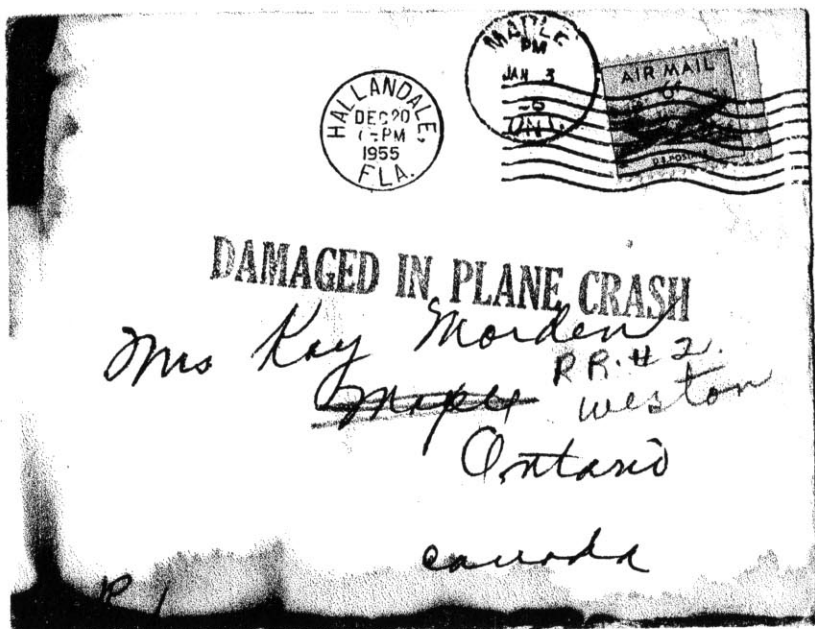 HALLANDALE,
DEC 20
PM
1955
FLA.
MAPLE
PM
JAN 3
ONT.
AIR MAIL
DAMAGED IN PLANE CRASH
Mrs Kay Morden
R R. # 2.
Maple Weston
Ontario
Canada